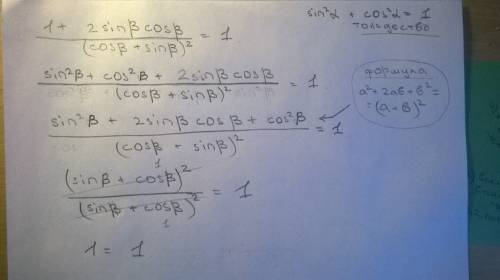 1 + 2sinβcosβ / (cosβ + sinβ)² = 1
sin²α + cos²α = 1
тождество
sin²β + cos²β + 2sinβcosβ / (cosβ + sinβ)² = 1
формула
a² + 2aв + в² =
= (a + в)²
sin²β + 2sinβcosβ + cos²β / (cosβ + sinβ)² = 1
(sinβ + cosβ)² 1 / (sinβ + cosβ)² 1 = 1
1 = 1